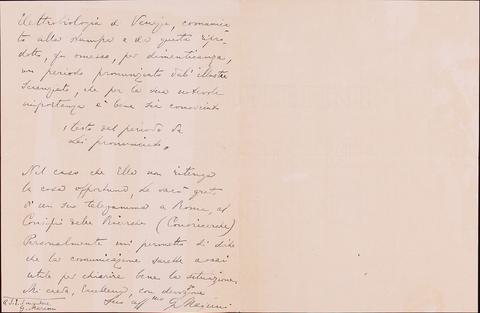 elettrobiologia di Venezia, comunica-
to alla stampa e da questa ripro-
dotto, fu omesso, per dimenticanza,
un periodo pronunziato dall'illustre
Scienziato, che per la sua notevole
importanza è bene sia conosciuto
(testo del periodo da
Lei pronunciato).
Nel caso che Ella non ritenga
la cosa opportuna, Le sarò grato
di un suo telegramma a Roma, al
Consiglio delle Ricerche (Conricerche)
Personalmente mi permetto di dire
che la comunicazione sarebbe assai
utile per chiarire bene la situazione.
Mi creda, Eccellenza, con devozione
Suo aff.mo G. Magrini
a S. E. Senatore
G. Marconi